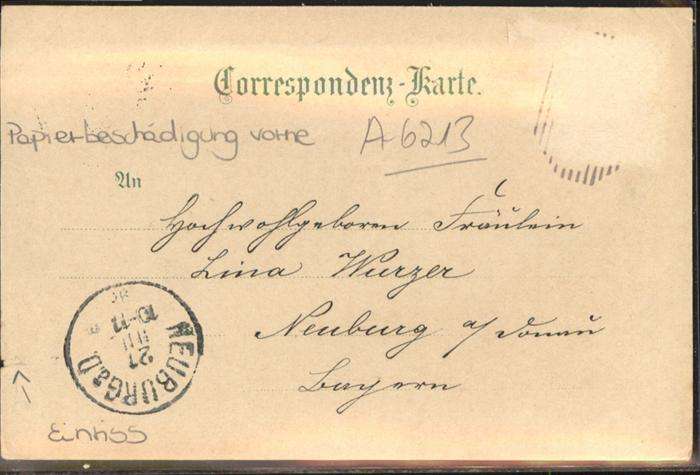 Correspondenz-Karte.
Papierbeschädigung vorne
A6213
An
Hochwohlgeboren Fräulein
Lina Wurzer
Neuburg a/Donau
Bayern
NEUBURG a.D.
27
10-11
Einriss